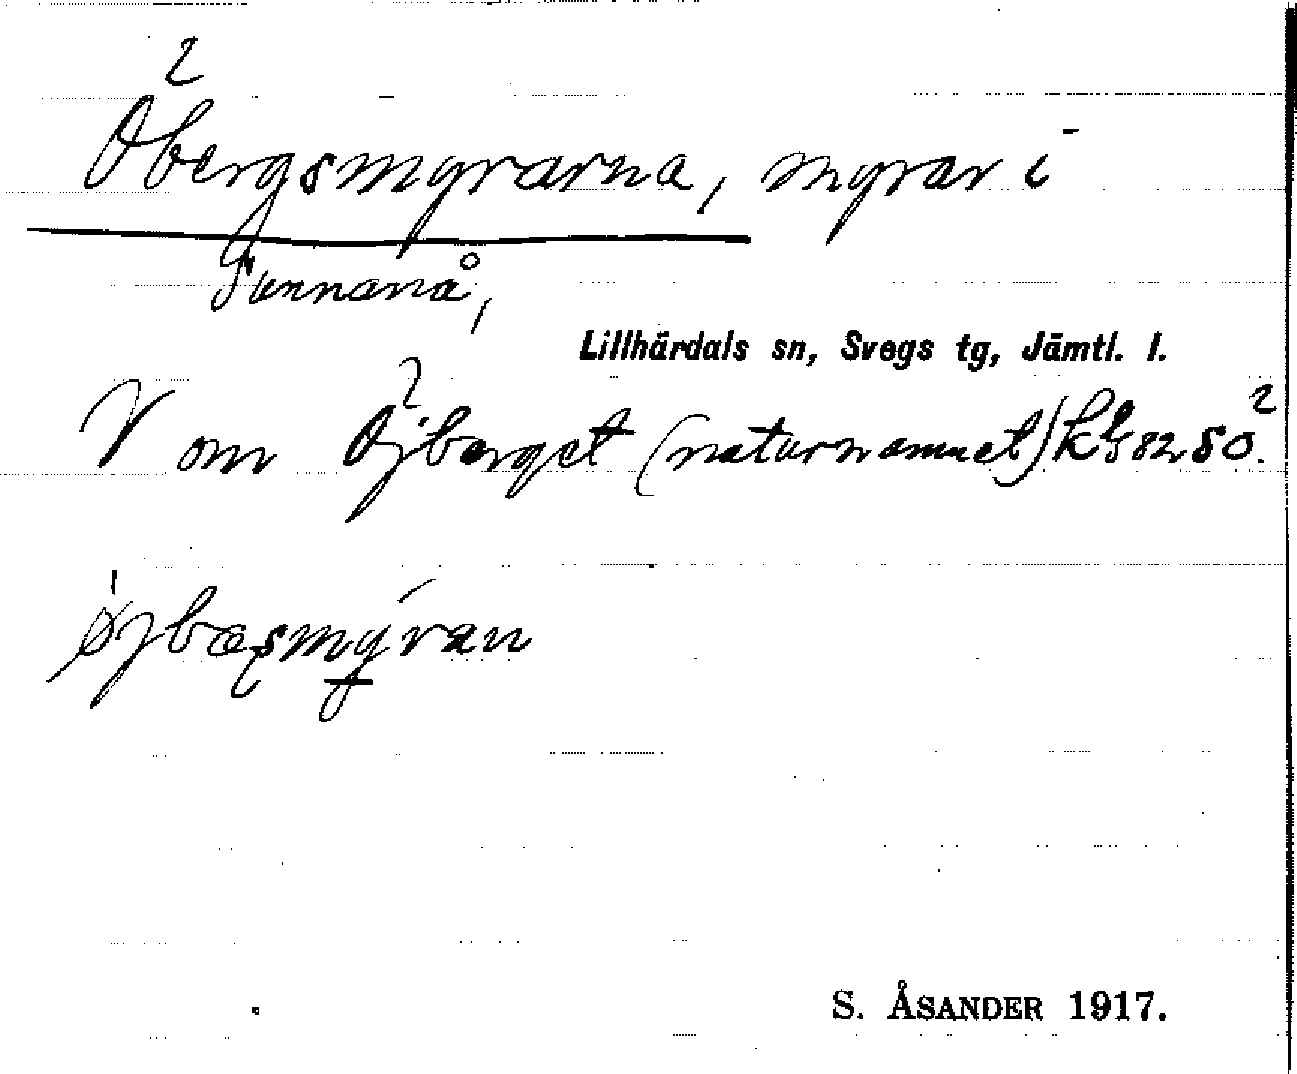 Öbergsmyrarna, myrar i
Sunnanå,
Lillhärdals sn, Svegs tg, Jämtl. l.
V om Öjberget (naturnamnet)
øjbæsmýran
S. ÅSANDER 1917.